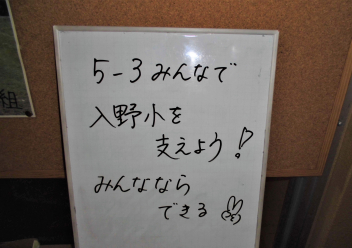 5-3 みんなで
入野小を
支えよう!
みんななら
できる
組